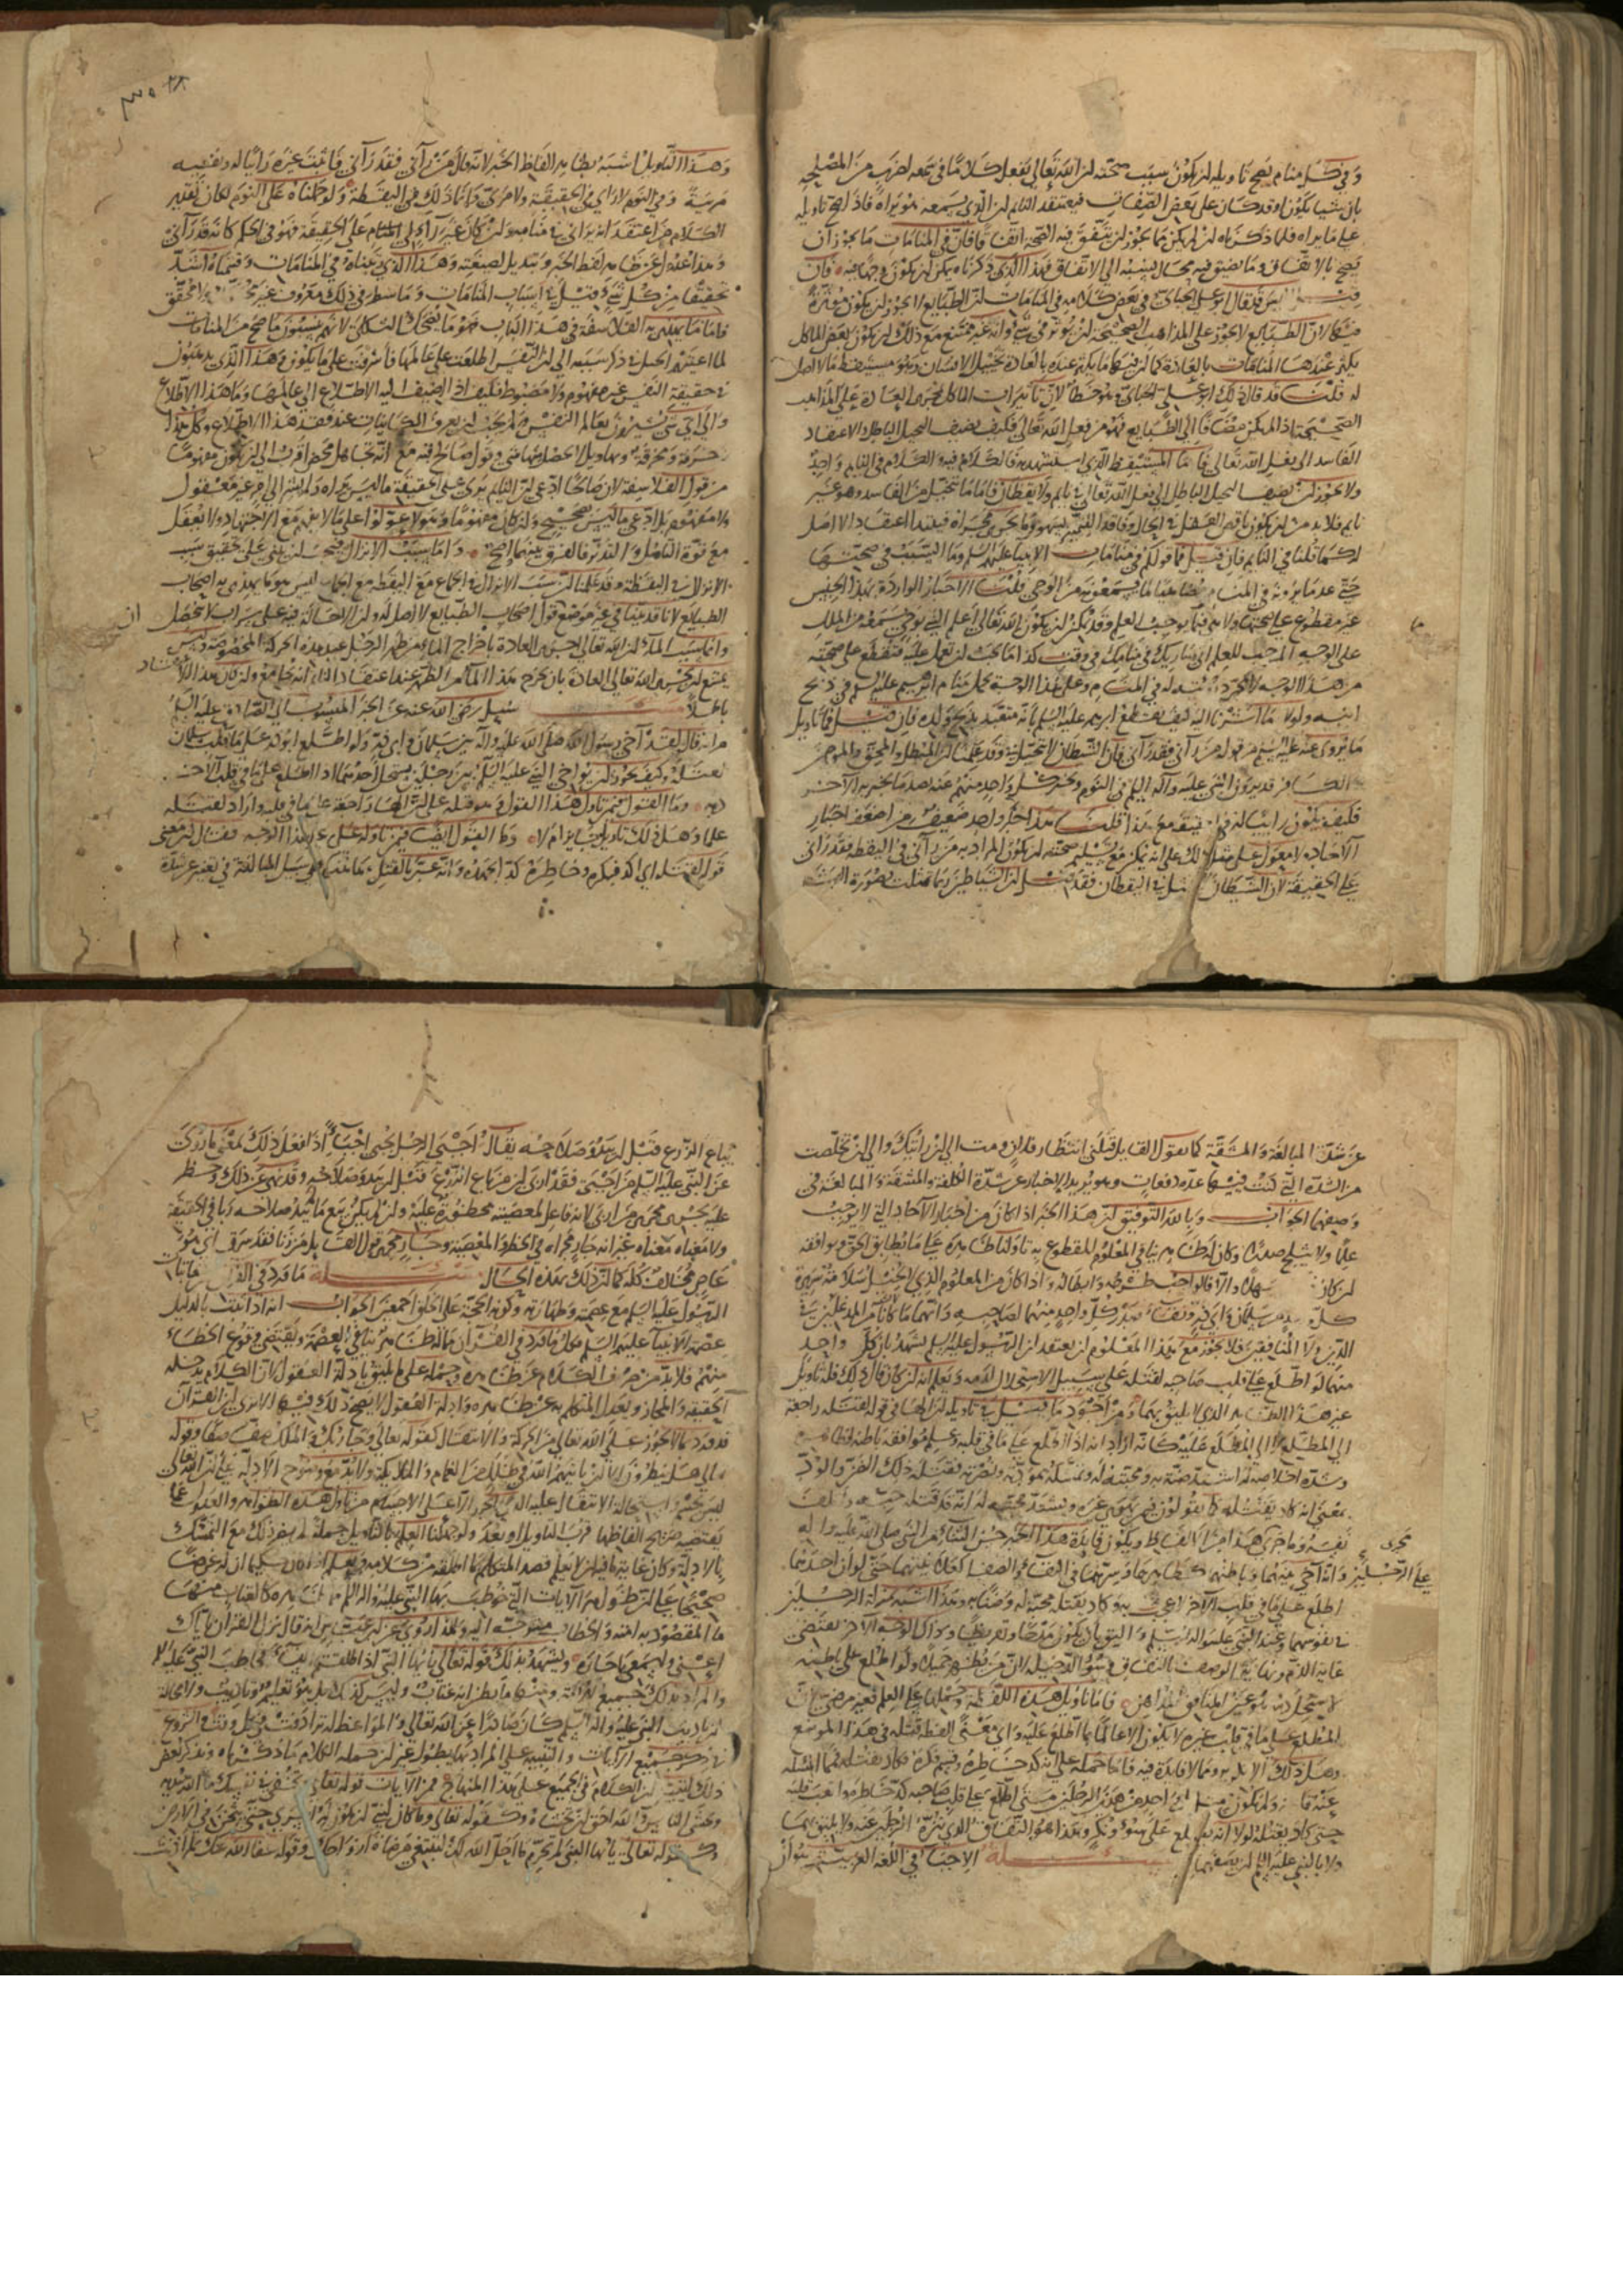 وفي كل منام يصح تاويله ان يكون سبب صحته ان الله تعالى يفعل كلاما في سمعه لضرب من المصلحة
بان شيا يكون او قد كان على بعض الصفات فيعتقد النايم ان الذي يسمعه هو يراه فاذا صح تاويله
على ما يراه فلما ذكرناه ان لم يكن مما يجوز ان يتفق فيه الصحة اتفاقا فان في المنامات ما يجوز ان
يصح بالاتفاق وما يضيق فيه مجال نسبته الى الاتفاق فهذا الذي ذكرناه يمكن ان يكون وجها فيه فان
قيل اليس قد قال ابو علي الجبائي في بعض كلامه في المنامات ان الطبايع لا يجوز ان يكون موثرة
فيها لان الطبايع لا يجوز على المذاهب الصحيحة ان يوثر في شي وانه غير ممتنع مع ذلك ان يكون بعض الماكل
يكثر عندها المنامات بالعادة كما ان فيها ما يكثر عنده بالعادة تخييل الانسان وهو مستيقظ ما لا اصل
له قلت قد قال ذلك ابو علي الجبائي وهو خطا لان تاثيرات الماكل بمجرى العادة على المذاهب
الصحيحة اذا لم يكن مضافا الى الطبايع فهو من فعل الله تعالى فكيف نضيف التخيل الباطل والاعتقاد
الفاسد الى فعل الله تعالى فاما المستيقظ الذي استشهد به فالكلام فيه والكلام في النايم واحد
ولا يجوز ان نضيف التخيل الباطل الى فعل الله تعالى في نايم ولا يقظان فاما ما يتخيل من الفاسد وهو غير
نايم فلا بد من ان يكون ناقص العقل في الحال وفاقد التمييز بسهو وما يجري مجراه فيبتدا اعتقاد لا اصل
له كما قلنا في النايم فان قيل فما قولكم في منامات الانبيا عليهم السلم وما السبب في صحتها
حتى عد ما يرونه في المنام مضاهيا لما يسمعونه من الوحي قلت الاخبار الواردة بهذا الجنس
غير مقطوع على صحتها ولا هي مما يوجب العلم وقد يمكن ان يكون الله تعالى اعلم النبي بوحي يسمعه من الملك
على الوجه الموجب للعلم اني ساريك في منامك في وقت كذا ما يجب ان تعمل عليه فيقطع على صحته
من هذا الوجه لا بمجرد رويته له في المنام وعلى هذا الوجه يحمل منام ابرهيم عليه السلم في ذبح
ابنه ولولا ما اشرنا اليه كيف يقطع ابرهيم عليه السلم بانه متعبد بذبح ولده فان قيل فما تاويل
ما يروى عنه عليه السلم من قوله من رآني فقد رآني فان الشيطان لا يتخيل بي وقد علمنا ان المبطل والمحق والمومن
والكافر قد يرون النبي عليه وآله السلم في النوم ويخبر كل واحد منهم عنه بضد ما يخبر به الآخر
فكيف يكون رايا له في الحقيقة مع هذا قلت هذا خبر واحد ضعيف من اضعف اخبار
الآحاد ولا معول على مثل ذلك على انه يمكن مع تسليم صحته ان يكون المراد به من رآني في اليقظة فقد رآني
على الحقيقة لان الشيطان لا يتمثل بي لليقظان فقد قيل ان الشياطين ربما تمثلت بصورة البشر
وهذا التاويل اشبه بظاهر الفاظ الخبر لانه قال من رآني فقد رآني فاثبت غيره رائيا له ونفسه
مرئية وفي النوم لا رائي في الحقيقة ولا مرئي وانما ذلك في اليقظة ولو حملناه على النوم لكان تقدير
الكلام من اعتقد انه يراني في منامه وان كان غير رآء لي على الحقيقة فهو في الحكم كانه قد رآني
وهذا عدول عن ظاهر لفظ الخبر وتبديل لصيغته وهذا الذي رتبناه في المنامات وقسمناه اشد
تحقيقا من كل شي قيل في اسباب المنامات وما سطر في ذلك معروف غير محصل ولا محقق
فاما ما يهذي به الفلاسفة في هذا الباب فهو مما يضحك الثكلى لانهم ينسبون ما صح من المنامات
لما اعيتهم الحيل في ذكر سببه الى ان النفس اطلعت على عالمها فاشرفت على ما يكون وهذا الذي يدعون
في حقيقة النفس غير مفهوم ولا مضبوط فكيف اذا اضيف اليه الاطلاع الى عالمها وما هذا الاطلاع
والى اي شي يشيرون بعالم النفس ولم يجب ان يعرف الكاينات عند فقد هذا الاطلاع وكل هذا
زخرفة ومخرقة وتهاويل لا يحصل منها شي وقول صالح فيه مع انه تجاهل محض اقرب الى ان يكون مفهوما
من قول الفلاسفة لان صالحا ادعى ان النايم يرى على الحقيقة ما ليس يراه ولم يشر الى امر غير معقول
ولا مفهوم بل ادعى ما ليس بصحيح وان كان مفهوما وهولا عولوا على ما لا يفهم مع الاجتهاد ولا يعقل
مع قوة التامل والتدبر فالفرق بينهما واضح واما سبب الانزال فيجب ان يبنى على تحقيق سبب
الانزال في اليقظة وقد علمنا ان سبب الانزال في الجماع مع اليقظة مع الجماع ليس هو ما يهذي به اصحاب
الطبايع لانا قد بينا في غير موضع قول اصحاب الطبايع لا اصل له وان الاحالة فيه على سراب لا يحصل
وانما سبب الماء ان الله تعالى اجرى العادة باخراج الماء من ظهر الرجل عند هذه الحركة المخصوصة وليس
يمتنع ان يجري الله تعالى العادة بان يخرج هذا الماء من الظهر عند اعتقاد النايم انه يجامع وان كان هذا الاعتقاد
باطلا مسئلة سئل رضي الله عنه عن الخبر المنسوب الى الصادق عليه السلم
من انه قال لقد آخى رسول الله صلى الله عليه وآله بين سلمان وابي ذر ولو اطلع ابو ذر على ما في قلب سلمان
لقتله وكيف يجوز ان يواخي النبي عليه السلم بين رجلين يستحل احدهما اذا اطلع على ما في قلب الآخر
دمه وما القول فيمن تاول هذا القول في قوله لقتله على ان الهاء راجعة على ما في قلبه واراد لقتله
علما وهل ذلك تاويل جايز ام لا وما القول ايضا فيمن تاوله على غير هذا الوجه فقال ان معنى
قوله لقتله اي كد فكره وخاطره كدا اجهده وانه عبر بالقتل هاهنا على سبيل المبالغة في تعبير عن شدة
عن شدة المبالغة والمشقة كما يقول القايل قتلني انتظار فلان ومت الى ان رايتك والى ان تخلصت
من الشدة التي كنت فيها عدة دفعات وهو يريد الاخبار عن شدة الكلفة والمشقة والمبالغة في
وصفهما الجواب وبالله التوفيق ان هذا الخبر اذا كان من اخبار الآحاد التي لا يوجب
علما ولا تثلج صدرا وكان له ظاهر ينافي المعلوم المقطوع به تاولنا ظاهره على ما يطابق الحق ويوافقه
ان كان سهلا والا فالواجب طرحه وابطاله واذا كان من المعلوم الذي لا يختل سلامة سريرة
كل من سلمان وابي ذر ونقاء صدر كل واحد منهما لصاحبه وانهما ما كانا من المدغلين في
الدين ولا المنافقين فلا يجوز مع هذا المعلوم ان يعتقد ان الرسول عليه السلم يشهد بان كل واحد
منهما لو اطلع على قلب صاحبه لقتله على سبيل الاستحلال لدمه ونعلم انه ان كان قال ذلك فله تاويل
غير هذا الظاهر الذي لا يليق بهما ومن اجود ما قيل في تاويله ان الهاء في قوله لقتله راجعة
الى المطلع لا الى المطلع عليه كانه اراد انه اذا اطلع على ما في قلبه وعلم موافقة باطنه لظاهره
وشدة اخلاصه له اشتد ضنه به ومحبته له وتمسكه بمودته ونصرته فقتله ذلك الضن والود
بمعنى انه كاد يقتله كما يقولون فلان يهوى غيره ويشتد محبته له انه قد قتله حبه واتلف
نفسه وما جرى هذا من الالفاظ ويكون فايدة هذا الخبر حسن الثناء من النبي صلى الله عليه واله
على الرجلين وانه آخى بينهما وباطنهما كظاهرهما وسرهما في النقاء والصفا كعلانيتهما حتى لو ان احدهما
اطلع على ما في قلب الآخر لاعجب به وكاد يقتله محبة له وضنا به وهذا اشبه بمنزلة الرجلين
في نفوسهما وعند النبي عليه واله السلم واليق بان يكون مدحا وتقريظا وذاك الوجه الآخر يقتضي
غاية الذم ونهاية الوصف بالنفاق وسوء الدخيلة لان من يظهر جميلا ولو اطلع على باطنه
لاستحل دمه هو عين المنافق المداهن فاما تاويل هذه اللفظة وحملها على العلم فغير مرضي لان
المطلع على ما في قلب غيره لا يكون الا عالما بما اطلع عليه واي معنى للفظ قتله في هذا الموضع
وهل ذلك الا نهاية وما لا فايدة فيه فاما حمله على انه كد خاطره وقسم فكره فكاد يقتله مما امتثله
حتى كاد يقتله لولا انه يطلع على سوء ونكر وهذا هو النفاق الذي ننزه الرجلين عنه ولا يليق بهما
ولا بالنبي عليه السلم ان يصفهما مسئلة الاجبا في اللغة العربية هو ان
يباع الزرع قبل ان يبدو صلاحه يقال اجبى الرجل يجبي اجباء اذا فعل ذلك فمعنى ما روي
عن النبي عليه السلم من اجبى فقد اربى ان من باع الزرع قبل ان يبدو صلاحه وقد نهي عن ذلك وحظر
عليه يجري مجرى من اربى لانه فاعل لمعصية محظورة عليه وان لم يكن بيع ما لم يبد صلاحه ربا في الحقيقة
ولا معناه معناه غير انه جار مجراه في الحظر والمعصية وجار مجرى قول القايل من زنا فقد سرق اي هو
عاص مخالف كما ان ذلك بهذه الحال مسئلة ما ورد في القرآن
الرسول عليه السلم مع عصمته وطهارته وكونه الحجة على الخلق اجمعين الجواب انه اذا ثبت بالدليل
عصمة الانبيا عليهم السلم فكل ما ورد في القرآن مما له ظاهر ينافي العصمة ويقتضي وقوع الخطاء
منهم فلا بد من صرف الكلام عن ظاهره وحمله على ما يليق بادلة العقول لان الكلام يدخله
الحقيقة والمجاز ويعدل المتكلم به عن ظاهره وادلة العقول لا يصح ذلك فيها الا ترى ان القرآن
قد ورد بما لا يجوز على الله تعالى من الحركة والانتقال كقوله تعالى وجاء ربك والملك صفا صفا وقوله
تعالى هل ينظرون الا ان ياتيهم الله في ظلل من الغمام والملايكة ولا بد مع وضوح الادلة على ان الله تعالى
ليس بجسم واستحالة الانتقال عليه الذي لا يجوز الا على الاجسام من تاول هذه الظواهر والعدول عما
يقتضيه صريح الفاظها قرب التاويل او بعد ولو جهلنا العلم بالتاويل جملة لم يضر ذلك مع التمسك
بالادلة وكان غاية ما فيه ان لا نعلم قصد المتكلم بما اطلقه من كلامه ونعلم اذا كان حكيما ان له غرضا
صحيحا على ان ظواهر الآيات التي خوطب بها النبي عليه واله السلم ما ظاهره كالعتاب منها
ما المقصود به امته والخطاب متوجه اليه ولهذا روي عن ابن عباس انه قال نزل القران باياك
اعني واسمعي يا جارة ويشهد بذلك قوله تعالى يا ايها النبي اذا طلقتم النساء فخاطب النبي عليه السلم
والمراد بذلك جميع امته ومنها ما يظن انه عتاب وليس كذلك بل هو تعليم وتاديب ولا محالة
ان تاديب النبي عليه واله السلم كان صادرا عن الله تعالى والمواعظ له ترادفت في كل وقت والشروع
في ذكر جميع الآيات والتنبيه على المراد بها يطول غير ان جملة الكلام ما ذكرناه ونذكر بعض
ذلك ليتبين ان الكلام في الجميع على هذا المنهاج فمن الآيات قوله تعالى وتخفي في نفسك ما الله مبديه
وتخشى الناس والله احق ان تخشاه وكقوله تعالى وما كان لنبي ان يكون له اسرى حتى يثخن في الارض
وكقوله تعالى يا ايها النبي لم تحرم ما احل الله لك تبتغي مرضاة ازواجك وقوله عفا الله عنك لم اذنت